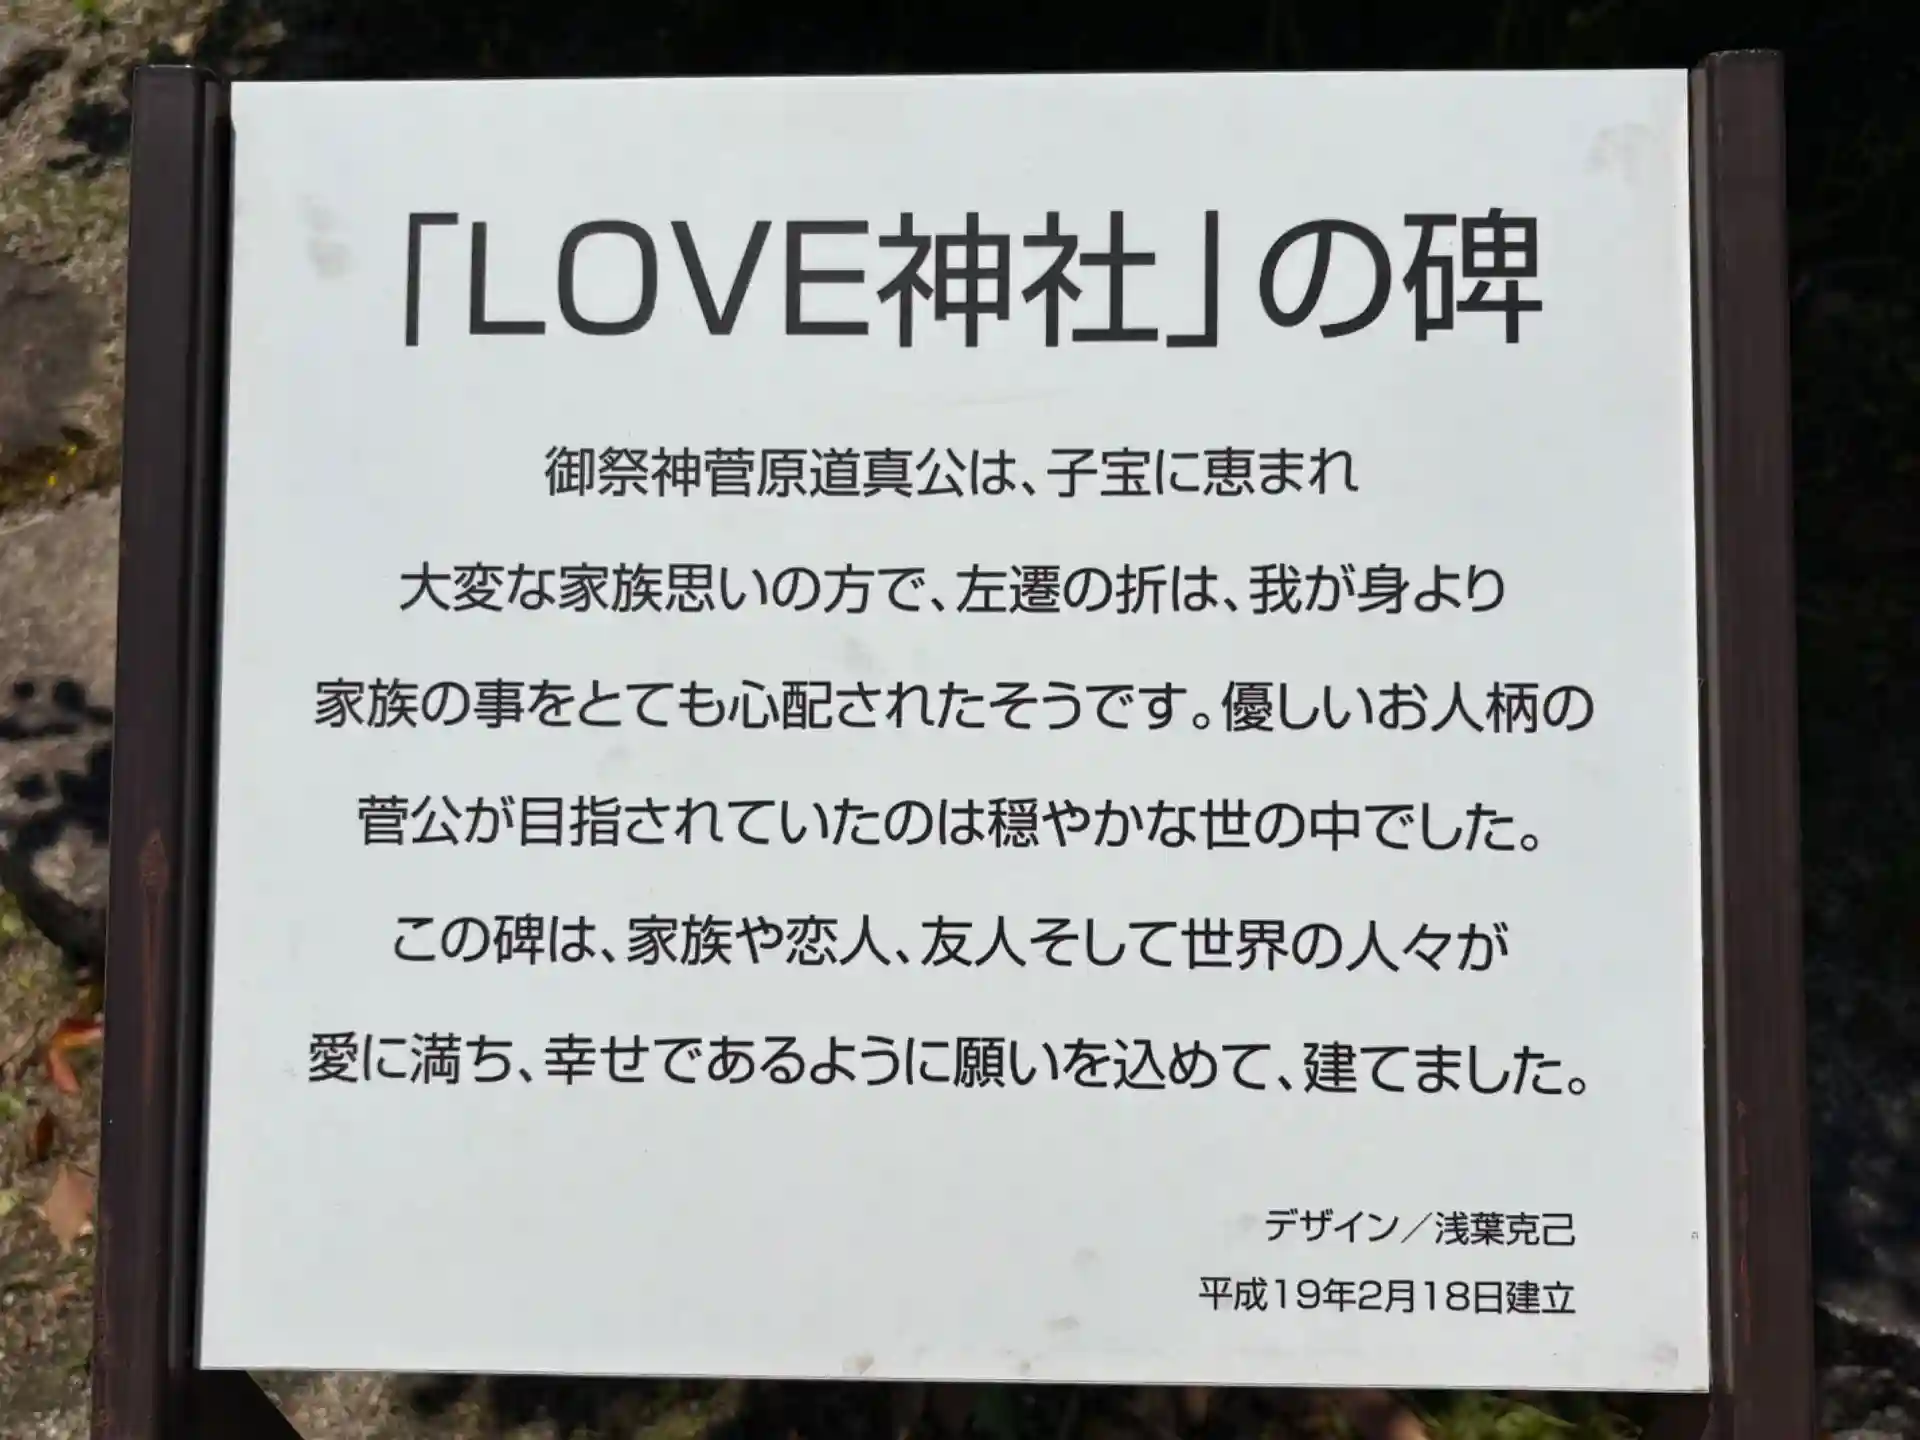 「LOVE神社」の碑
御祭神菅原道真公は、子宝に恵まれ
大変な家族思いの方で、左遷の折は、我が身より
家族の事をとても心配されたそうです。優しいお人柄の
菅公が目指されていたのは穏やかな世の中でした。
この碑は、家族や恋人、友人そして世界の人々が
愛に満ち、幸せであるように願いを込めて、建てました。
デザイン／浅葉克己
平成19年2月18日建立